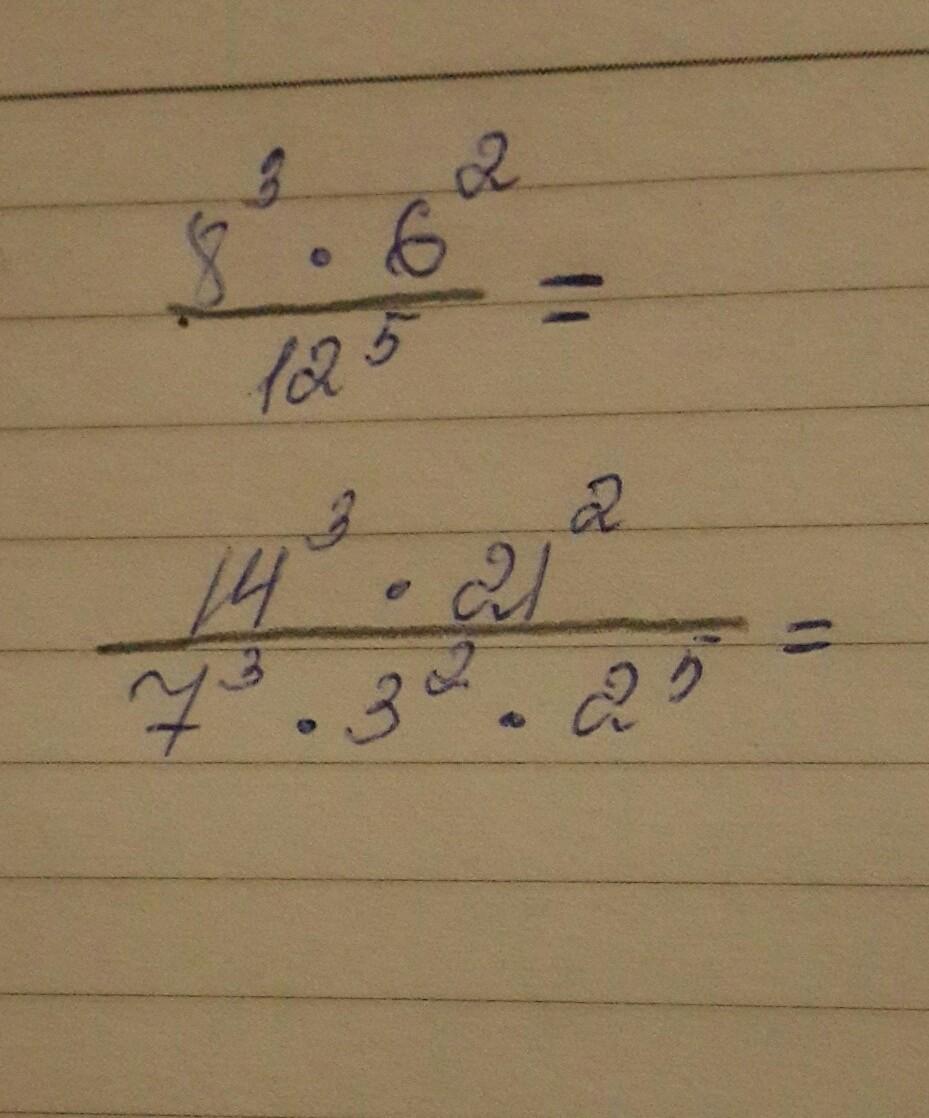 8³ · 6²
12⁵ =
14³ · 21²
7³ · 3² · 2⁵ =